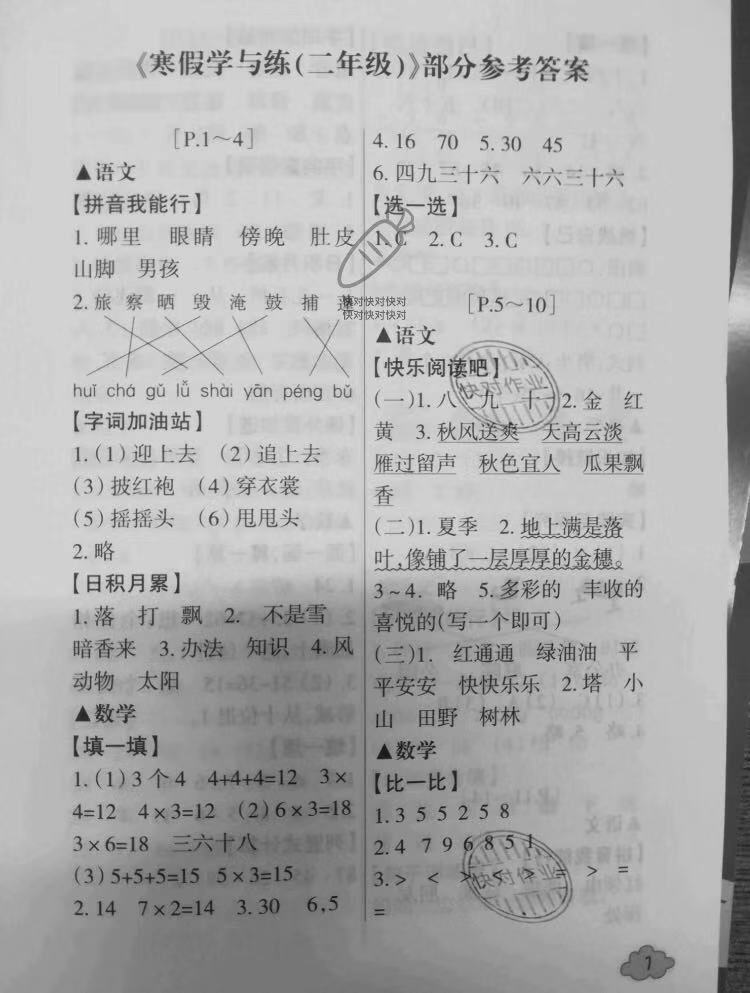 《寒假学与练(二年级)》部分参考答案
[P.1～4]
▲语文
【拼音我能行】
1. 哪里 眼睛 傍晚 肚皮
山脚 男孩
2. 旅 察 晒 毁 淹 鼓 捕 蓬
huǐ chá gǔ lǚ shài yān péng bǔ
【字词加油站】
1. (1)迎上去 (2)追上去
(3)披红袍 (4)穿衣裳
(5)摇摇头 (6)甩甩头
2. 略
【日积月累】
1. 落 打 飘 2. 不是雪
暗香来 3. 办法 知识 4. 风
动物 太阳
▲数学
【填一填】
1. (1)3个4 4+4+4=12 3×
4=12 4×3=12 (2)6×3=18
3×6=18 三六十八
(3)5+5+5=15 5×3=15
2. 14 7×2=14 3. 30 6,5
4. 16 70 5. 30 45
6. 四九三十六 六六三十六
【选一选】
1. C 2. C 3. C
快对快对快对
快对快对快对
[P.5～10]
▲语文
【快乐阅读吧】
快对作业
(一)1. 八 九 十 2. 金 红
黄 3. 秋风送爽 天高云淡
雁过留声 秋色宜人 瓜果飘
香
(二)1. 夏季 2. 地上满是落
叶,像铺了一层厚厚的金穗。
3~4. 略 5. 多彩的 丰收的
喜悦的(写一个即可)
(三)1. 红通通 绿油油 平
平安安 快快乐乐 2. 塔 小
山 田野 树林
▲数学
【比一比】
1. 3 5 5 2 5 8
2. 4 7 9 6 8 5 1
3. > < > < > = > =
=
快对作业
1